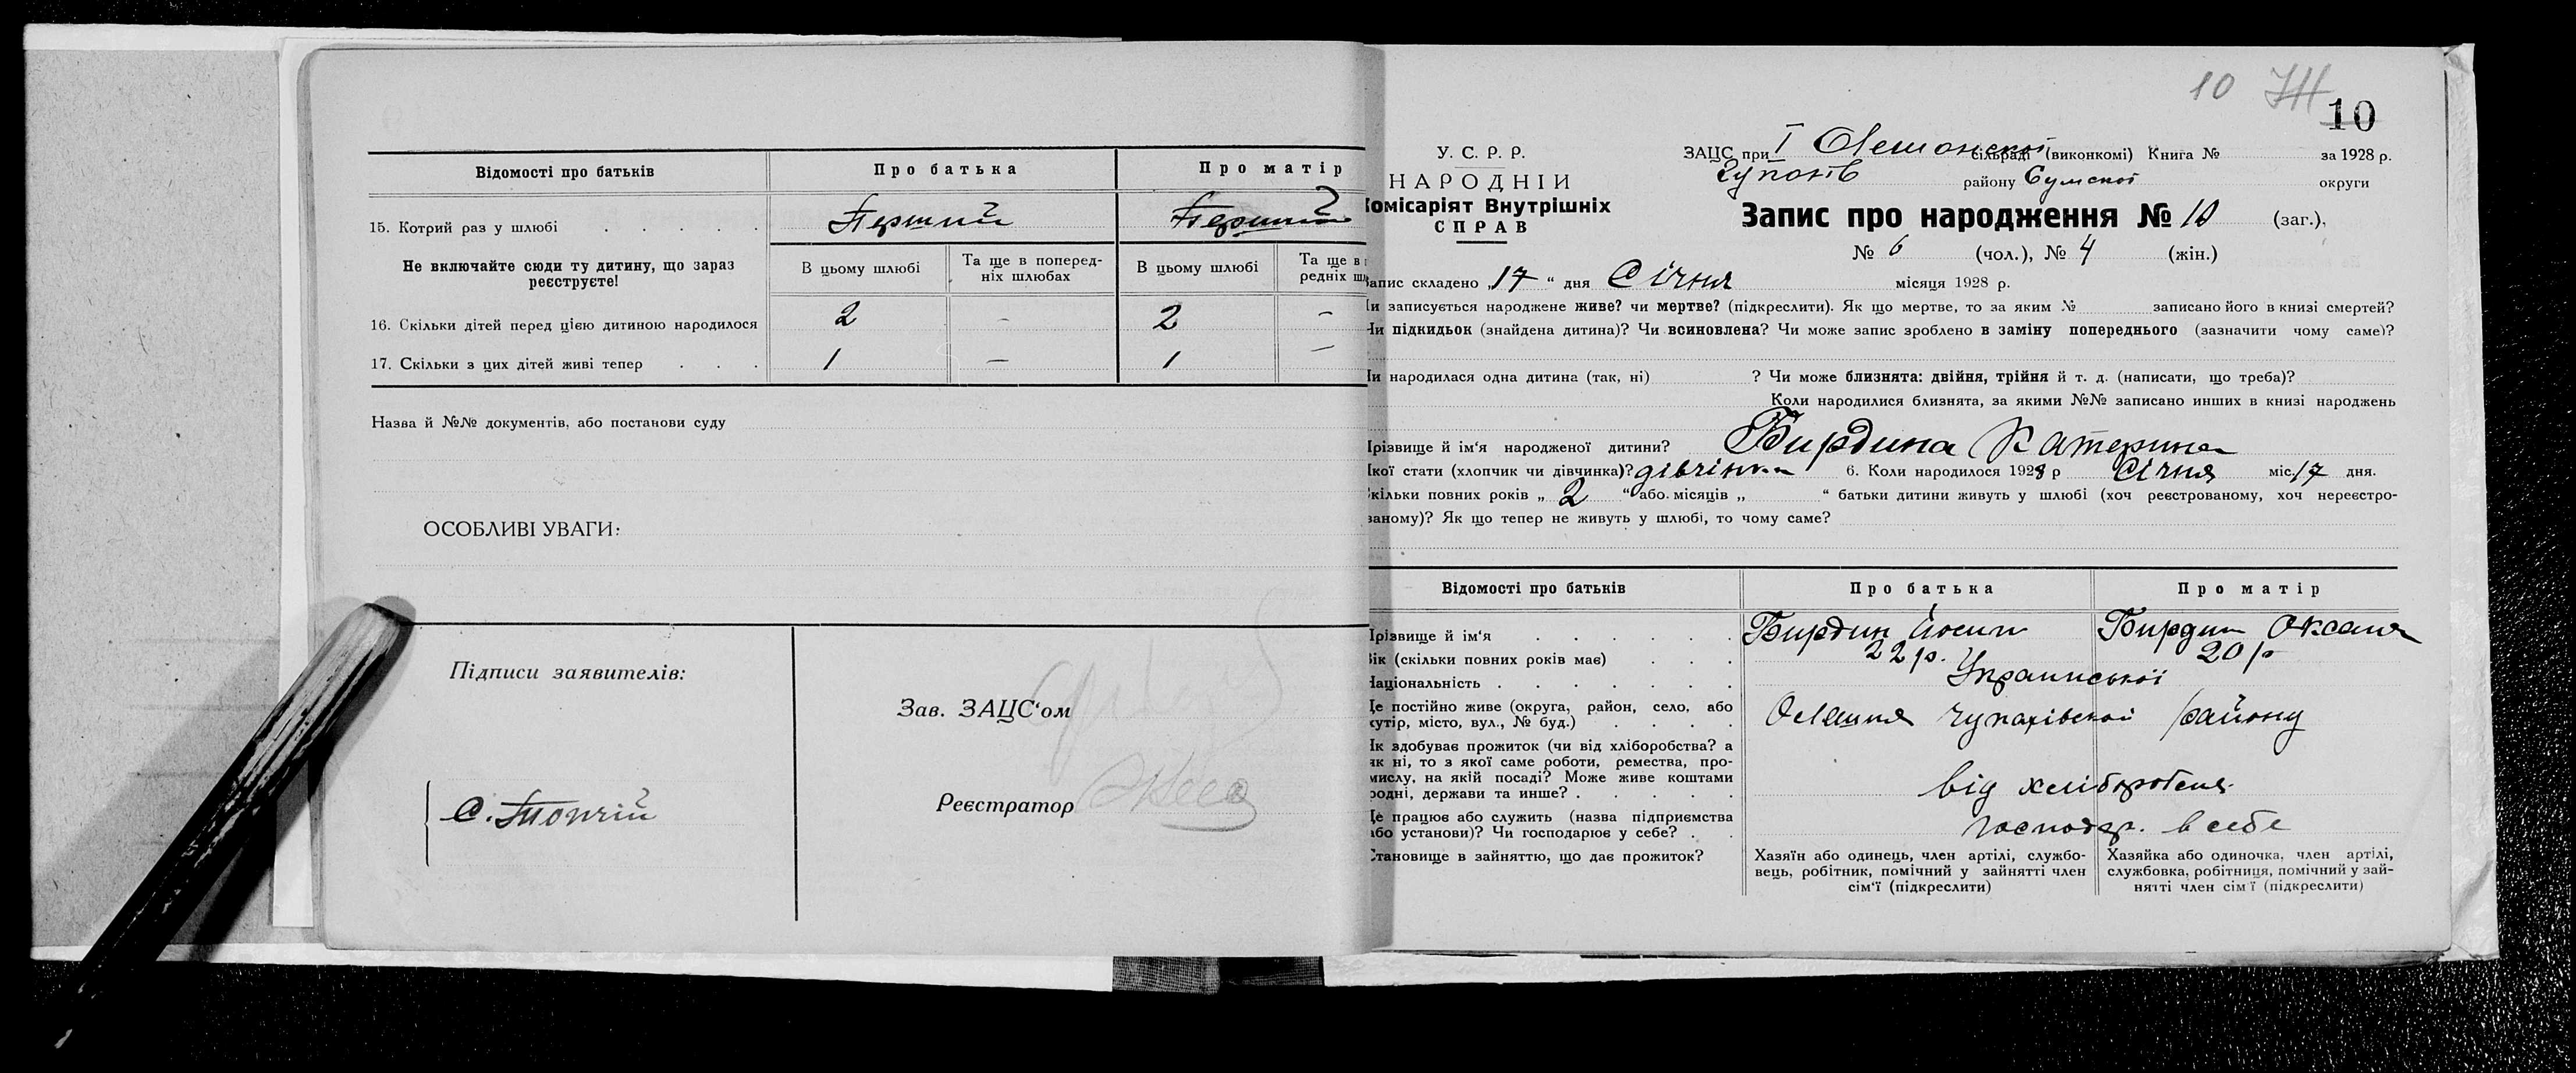 Відомості про батьків
Про батька
Про матір
15. Котрий раз у шлюбі
Перший
Перший
Не включайте сюди ту дитину, що зараз
реєструєте!
В цьому шлюбі
Та ще в поперед-
ніх шлюбах
В цьому шлюбі
Та ще в
редніх
16. Скільки дітей перед цією дитиною народилося
2
—
2
—
17. Скільки з цих дітей живі тепер
1
—
1
—
Назва й №№ документів, або постанови суду
ОСОБЛИВІ УВАГИ:
Підписи заявителів:
Зав. ЗАЦС'ом
Реєстратор
10
10
У. С. Р. Р.
НАРОДНІЙ
Комісаріят Внутрішніх
СПРАВ
ЗАЦС при I сільраді (виконкомі) Книга № за 1928 р.
району Сумской округи
Запис про народження № 10 (заг.),
№ 6 (чол.), № 4 (жін.)
Запис складено „17“ дня Січня місяця 1928 р.
Чи записується народжене живе? чи мертве? (підкреслити). Як що мертве, то за яким № записано його в книзі смертей?
Чи підкидьок (знайдена дитина)? Чи всиновлена? Чи може запис зроблено в заміну попереднього (зазначити чому саме)?
Чи народилася одна дитина (так, ні) ? Чи може близнята: двійня, трійня й т. д. (написати, що треба)?
Коли народилися близнята, за якими №№ записано инших в книзі народжень
Прізвище й ім'я народженої дитини? Бирдина Катерина
Якої стати (хлопчик чи дівчинка)? дівчінка 6. Коли народилося 1928 р Січня міс. 17 дня.
Скільки повних років „ 2 “ або місяців „ “ батьки дитини живуть у шлюбі (хоч реєстрованому, хоч нереєстро-
ваному)? Як що тепер не живуть у шлюбі, то чому саме?
Відомості про батьків
Про батька
Про матір
Прізвище й ім'я
Бирдин Йосип
Бирдин Оксана
Вік (скільки повних років має)
22 р.
20 р
Національність
Украинської
Де постійно живе (округа, район, село, або
хутір, місто, вул., № буд.)
Олешня Чупахівской району
Як здобуває прожиток (чи від хліборобства? а
як ні, то з якої саме роботи, ремества, про-
мислу, на якій посаді? Може живе коштами
родні, держави та инше?
від хліборобства
Де працює або служить (назва підприємства
або установи)? Чи господарює у себе?
господар. в себе
Становище в зайняттю, що дає прожиток?
Хазяїн або одинець, член артілі, службо-
вець, робітник, помічний у зайнятті член
сім'ї (підкреслити)
Хазяйка або одиночка, член артілі,
службовка, робітниця, помічний у зай-
нятті член сім'ї (підкреслити)